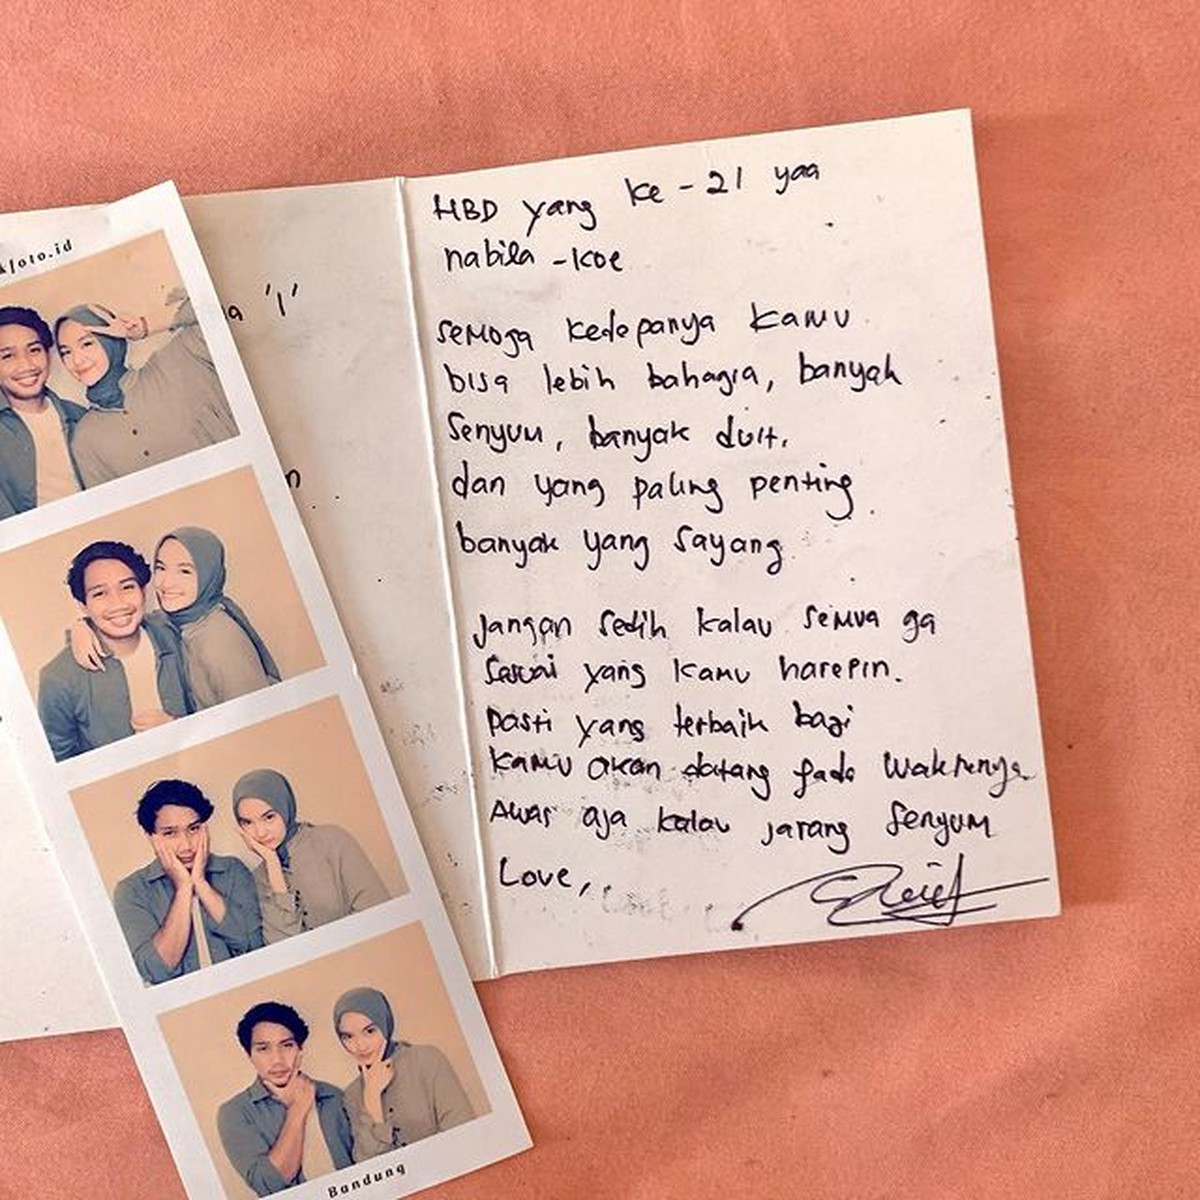 kfoto.id
a '1'
n
HBD yang ke - 21 yaa
nabila - koe
semoga kedepanya kamu
bisa lebih bahagia, banyak
senyum, banyak duit.
dan yang paling penting
banyak yang sayang
Jangan sedih kalau semua ga
sesuai yang kamu harepin.
pasti yang terbaik bagi
kamu akan datang pada waktunya
Awas aja kalau jarang senyum
Love,
Bandung